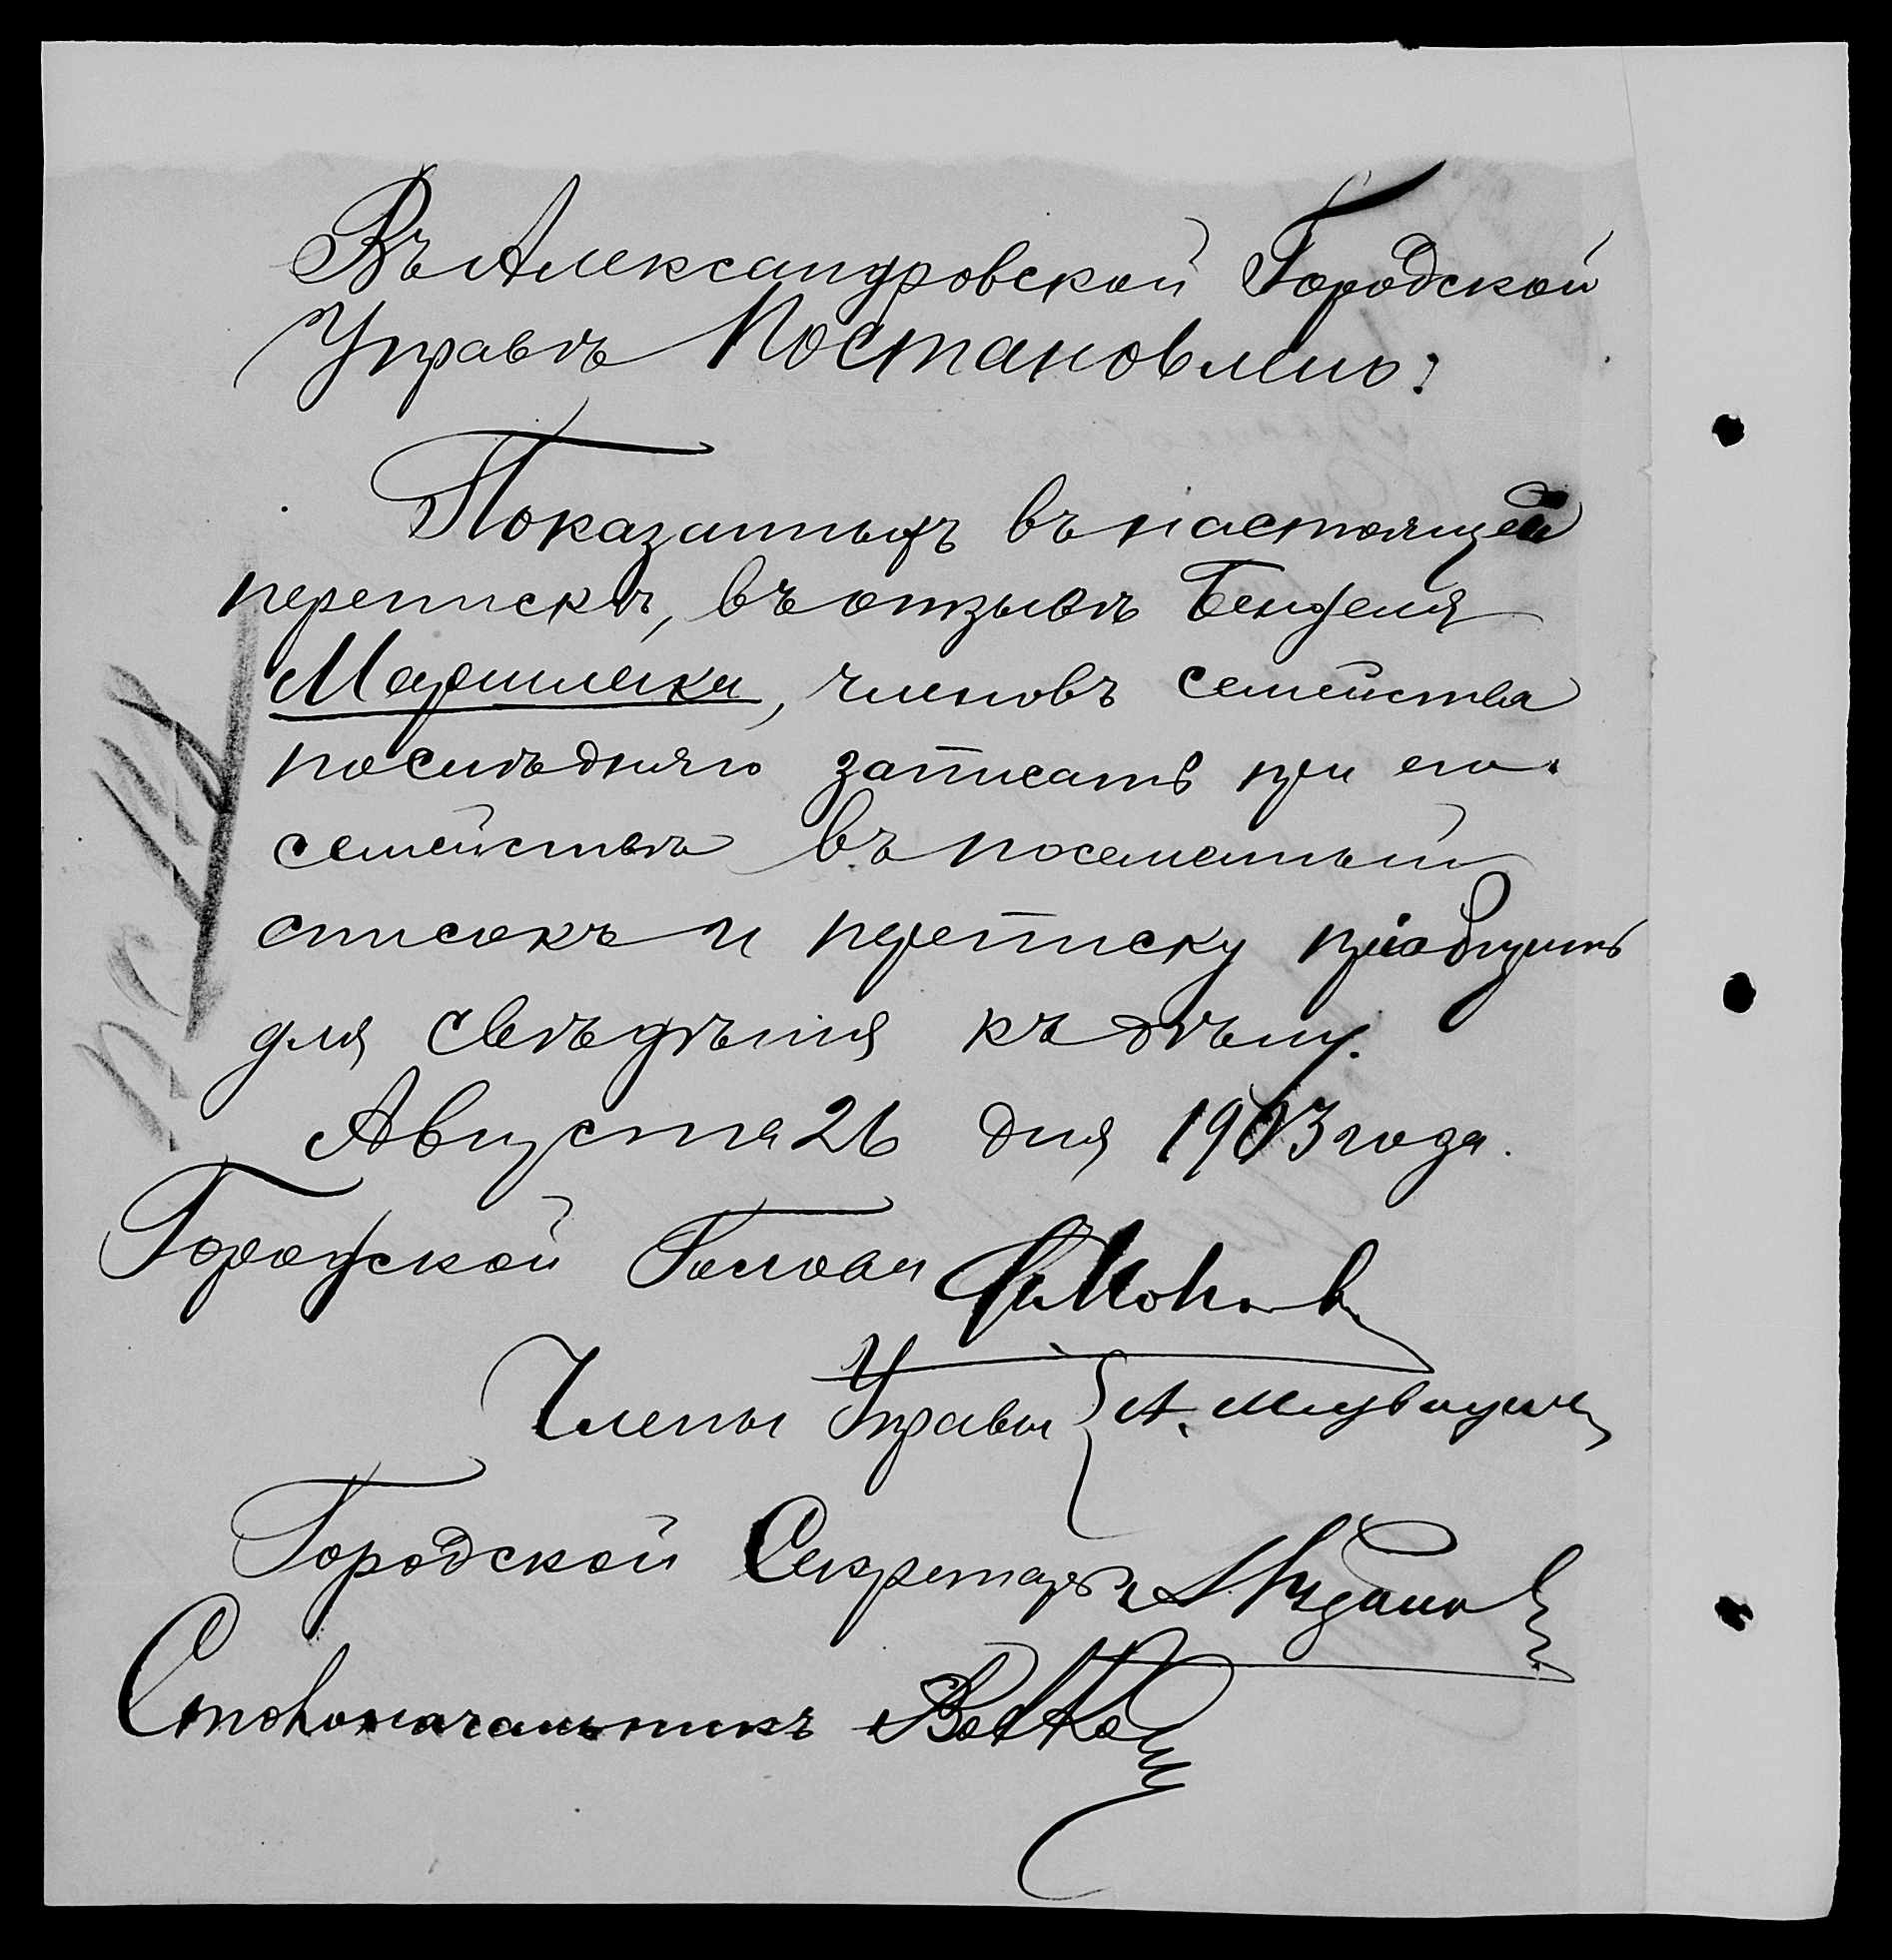 Въ Александровской Городской
Управѣ Постановлено:
Показанныхъ въ настоящей
перепискѣ, въ отзывѣ Бенцеля
членовъ семейства
послѣдняго записать при его
семействѣ въ посемейный
списокъ и переписку пріобщить
для свѣдѣнія къ дѣлу.
Августа 26 дня 1903 года.
Городской Голова
Члены Управы
Городской Секретарь
Столоначальникъ